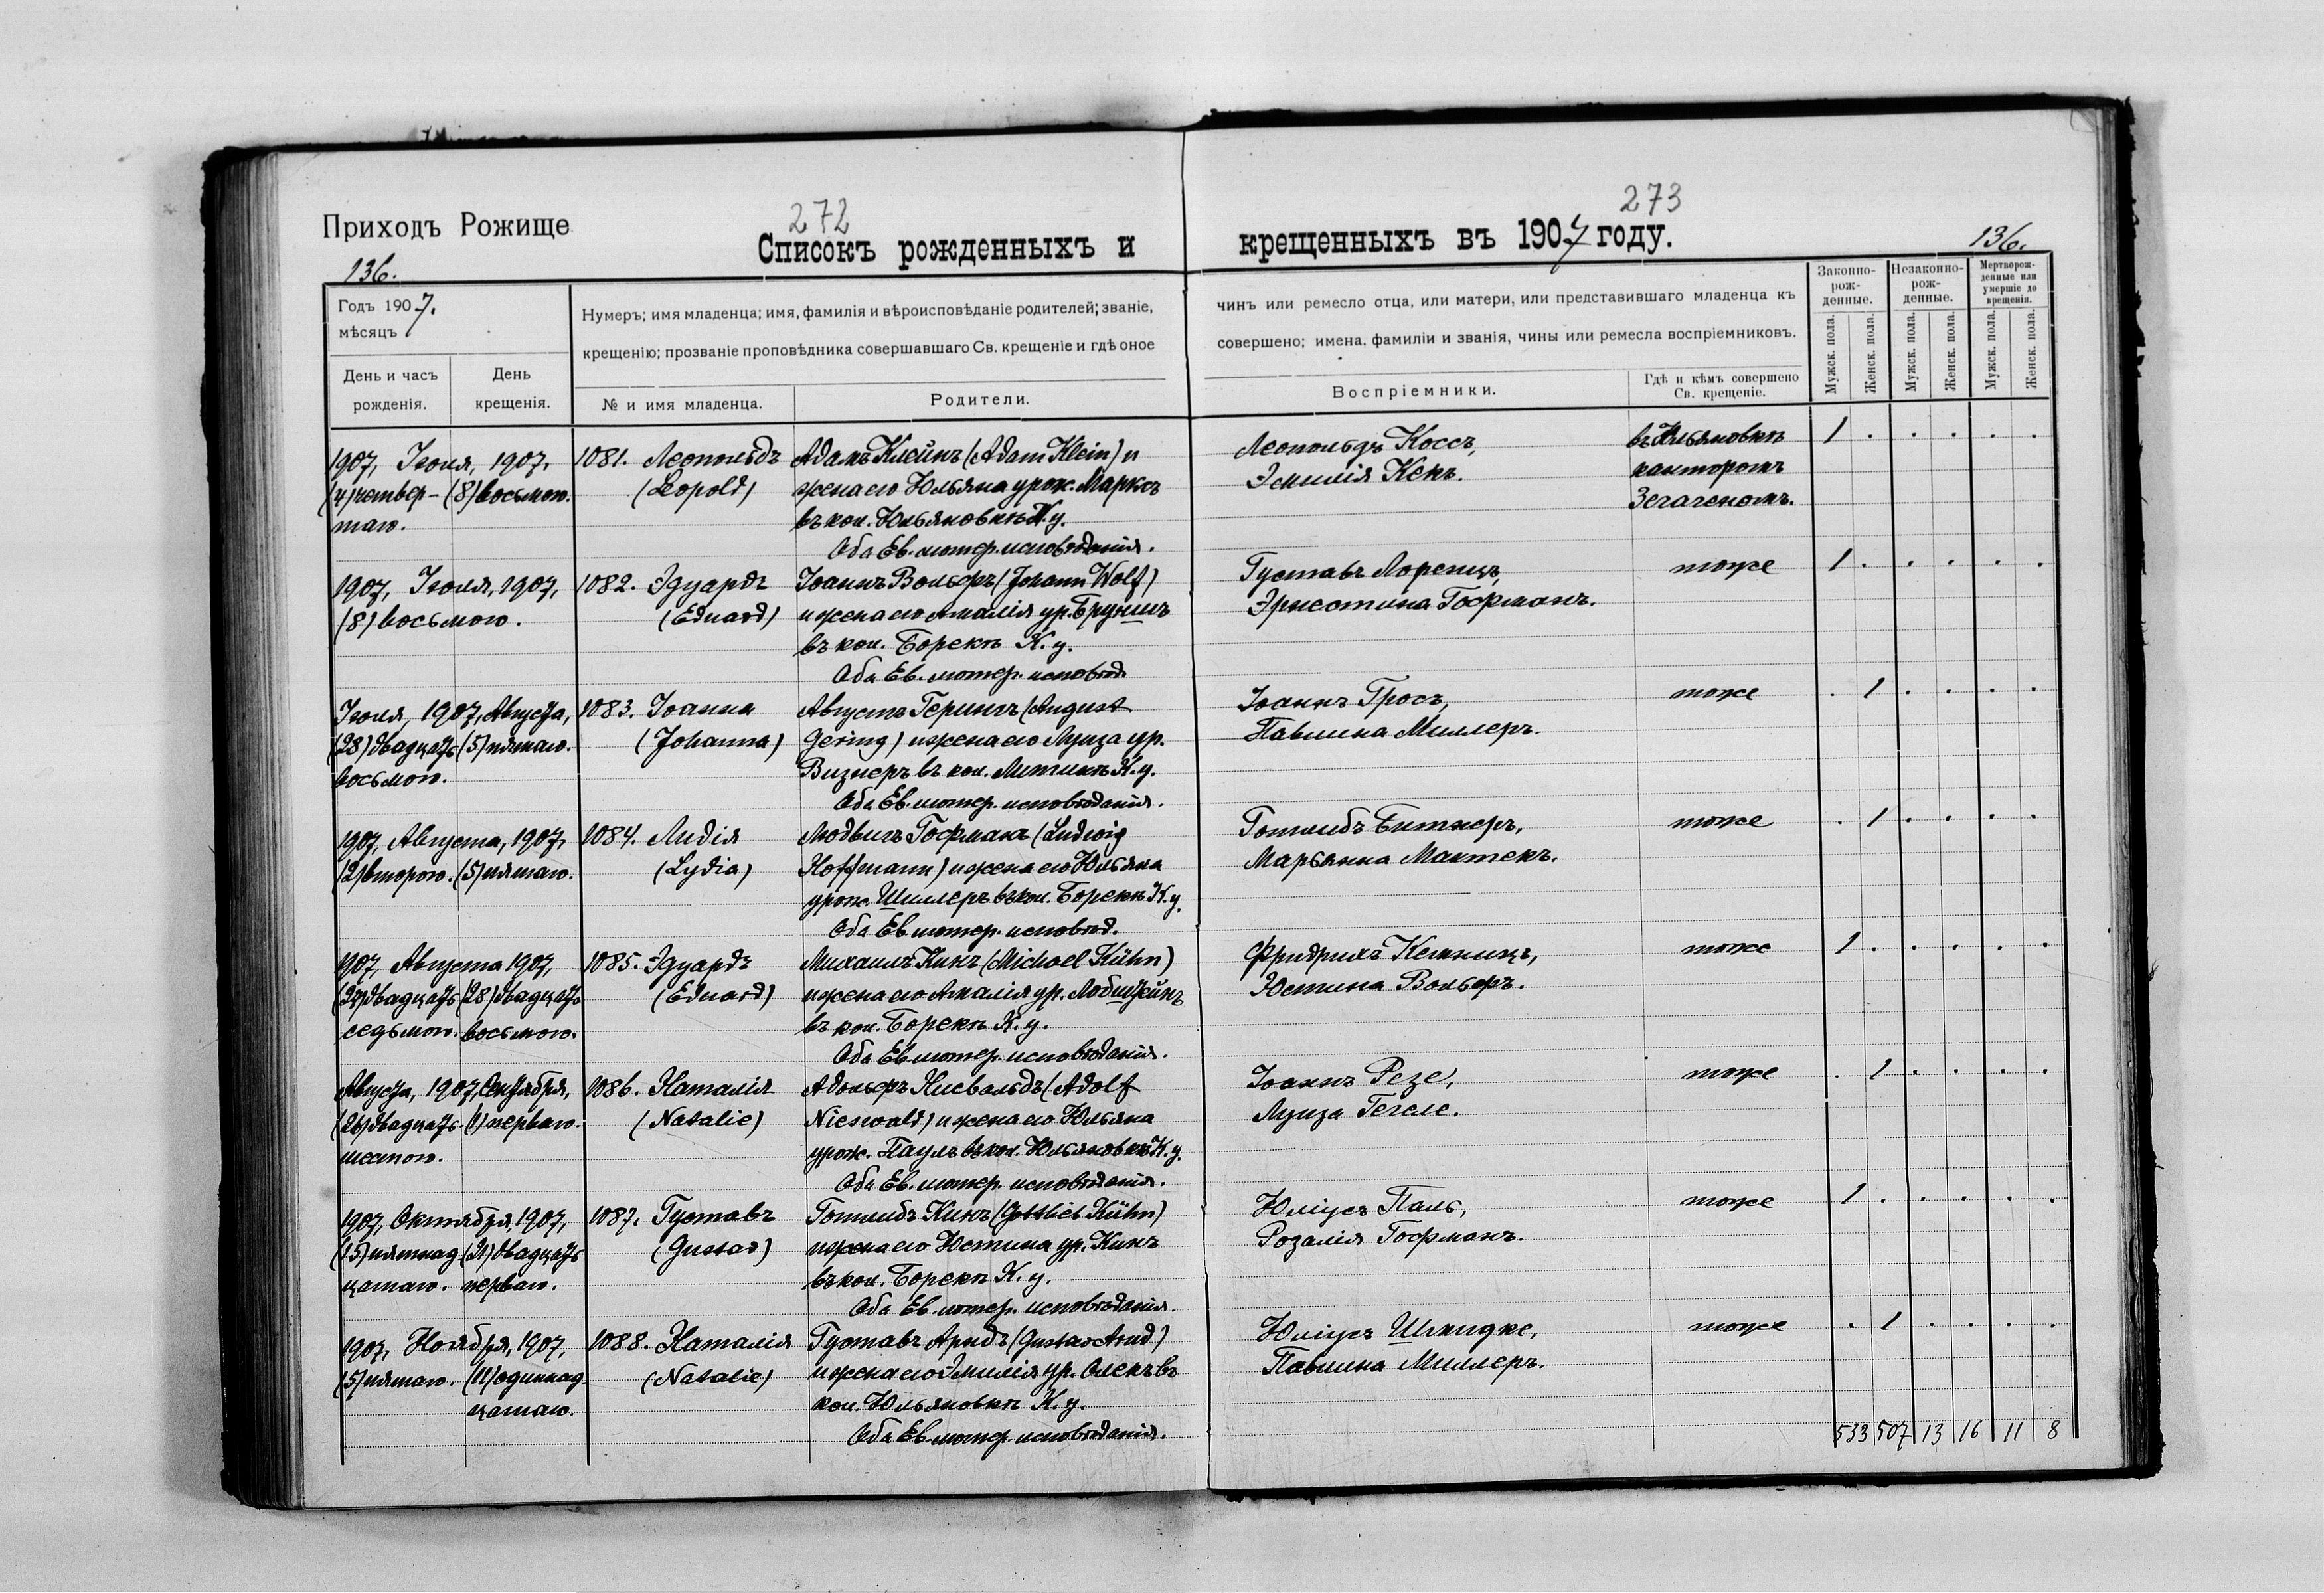 272
273
Приходъ Рожище
Списокъ рожденныхъ и крещенныхъ въ 1907 году.
136.
136.
Годъ 1907.
мѣсяцъ
День и часъ рожденія.
День крещенія.
Нумеръ; имя младенца; имя, фамилія и вѣроисповѣданіе родителей; званіе,
чинъ или ремесло отца, или матери, или представившаго младенца къ
крещенію; прозваніе проповѣдника совершавшаго Св. крещеніе и гдѣ оное
совершено; имена, фамиліи и званія, чины или ремесла воспріемниковъ.
№ и имя младенца.
Родители.
Воспріемники.
Гдѣ и кѣмъ совершено
Св. крещеніе.
Законно-
рож-
денные.
Незаконно-
рож-
денные.
Мертворож-
денные или
умершіе до
крещенія.
Мужск. пола.
Женск. пола.
Мужск. пола.
Женск. пола.
Мужск. пола.
Женск. пола.
1907, Іюля, 1907,
(4) четвер- (8) восьмого.
таго.
1081. Леопольдъ
(Leopold)
Адамъ Клейнъ (Adam Klein) и
жена его Юльяна урож. Марксъ
въ кол. Юльяновкѣ К.у.
Оба Ев. лютер. исповѣданія.
Леопольдъ Коссъ,
Эмилія Кекъ.
въ Юльяновкѣ
канторомъ
1 . . . . .
1907, Іюля, 1907,
(8) восьмого.
1082. Эдуардъ
(Eduard)
Іоаннъ Вольфъ (Johann Wolf)
и жена его Амалія ур. Брунишъ
въ кол. Борекѣ К.у.
Оба Ев. лютер. исповѣд.
Густавъ Лоренцъ,
Эрнестина Гофманъ.
тоже
1 . . . . .
Іюля, 1907, Августа,
(28) двадцать (5) пятаго.
восьмого.
1083. Іоанна
(Johanna)
Августъ Герингъ (August
Gering) и жена его Луиза ур.
Визнеръ въ кол. Литинѣ К.у.
Оба Ев. лютер. исповѣданія.
Іоаннъ Гросъ,
Павлина Миллеръ.
тоже
. 1 . . . .
1907, Августа, 1907,
(2) второго. (5) пятаго.
1084. Лидія
(Lydia)
Людвигъ Гофманъ (Ludwig
Hoffmann) и жена его Юльяна
урож. Шиллеръ въ кол. Борекѣ К.у.
Оба Ев. лютер. исповѣд.
Готлибъ Битнеръ,
Марьянна Мантекъ.
тоже
. 1 . . . .
1907, Августа 1907,
(27) двадцать (28) двадцать
седьмого. восьмого.
1085. Эдуардъ
(Eduard)
Михаилъ Кинъ (Michael Kühn)
и жена его Амалія ур.
въ кол. Борекѣ К.у.
Оба Ев. лютер. исповѣданія.
Фридрихъ Кемницъ,
Юстина Вольфъ.
тоже
1 . . . . .
Августа, 1907, Сентября,
(26) двадцать (1) перваго.
шестого.
1086. Наталія
(Natalie)
Адольфъ Нисвальдъ (Adolf
Nieswald) и жена его Юльяна
урож. Паулъ въ кол. Юльяновкѣ К.у.
Оба Ев. лютер. исповѣданія.
Іоаннъ Резе,
Луиза Гегеле.
тоже
. 1 . . . .
1907, Октября, 1907,
(15) пятнад- (21) двадцать
цатаго. перваго.
1087. Густавъ
(Gustav)
Готлибъ Кинъ (Gottlieb Kühn)
и жена его Юстина ур. Кинъ
въ кол. Борекѣ К.у.
Оба Ев. лютер. исповѣданія.
Юліусъ Паль,
Розалія Гофманъ.
тоже
1 . . . . .
1907, Ноября, 1907,
(5) пятаго. (11) одиннад-
цатаго.
1088. Наталія
(Natalie)
Густавъ Арндъ (Gustav Arnd)
и жена его Эмилія ур. Олекъ въ
кол. Юльяновкѣ К.у.
Оба Ев. лютер. исповѣданія.
Юліусъ Шмидке,
Павлина Миллеръ.
тоже
. 1 . . . .
533 507 13 16 11 8